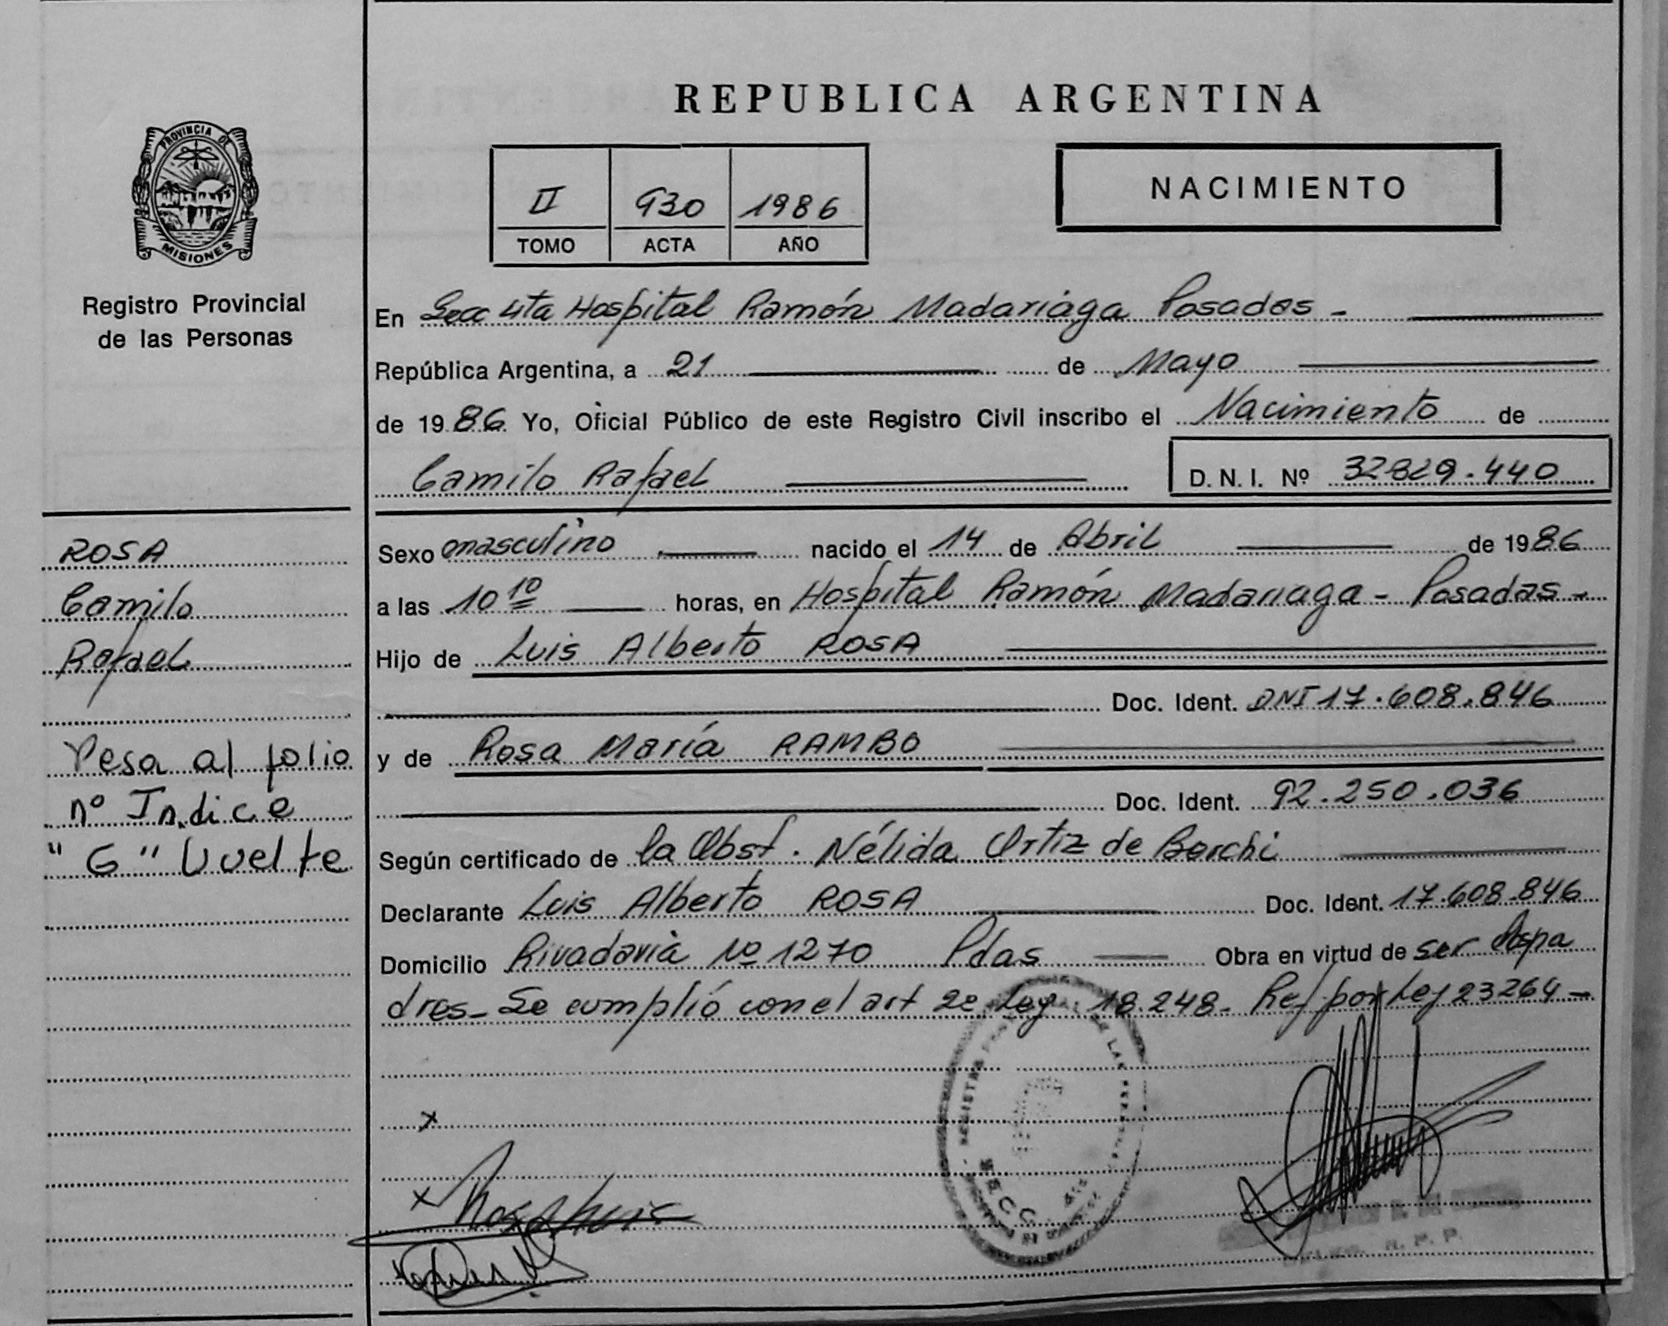 REPUBLICA ARGENTINA
PROVINCIA DE
MISIONES
Registro Provincial
de las Personas
II 930 1986
TOMO ACTA AÑO
NACIMIENTO
En Secc 4ta Hospital Ramón Madariaga Posadas -
República Argentina, a 21 de Mayo
de 1986 Yo, Oficial Público de este Registro Civil inscribo el Nacimiento de
Camilo Rafael D. N. I. Nº 32829.440
Sexo masculino nacido el 14 de Abril de 1986
a las 10 10 horas, en Hospital Ramón Madariaga - Posadas -
Hijo de Luis Alberto ROSA
Doc. Ident. DNI 17.608.846
y de Rosa María RAMBO
Doc. Ident. 92.250.036
Según certificado de la Obst. Nélida Ortiz de Borchi
Declarante Luis Alberto ROSA Doc. Ident. 17.608.846
Domicilio Rivadavia Nº 1270 Pdas Obra en virtud de ser los pa
dres - Se cumplió con el art 2º Ley 18.248 - Ref por Ley 23264 -
ROSA
Camilo
Rafael
Pasa al folio
nº Indice
"G" Vuelta
x
x
SECC.
R. P. P.